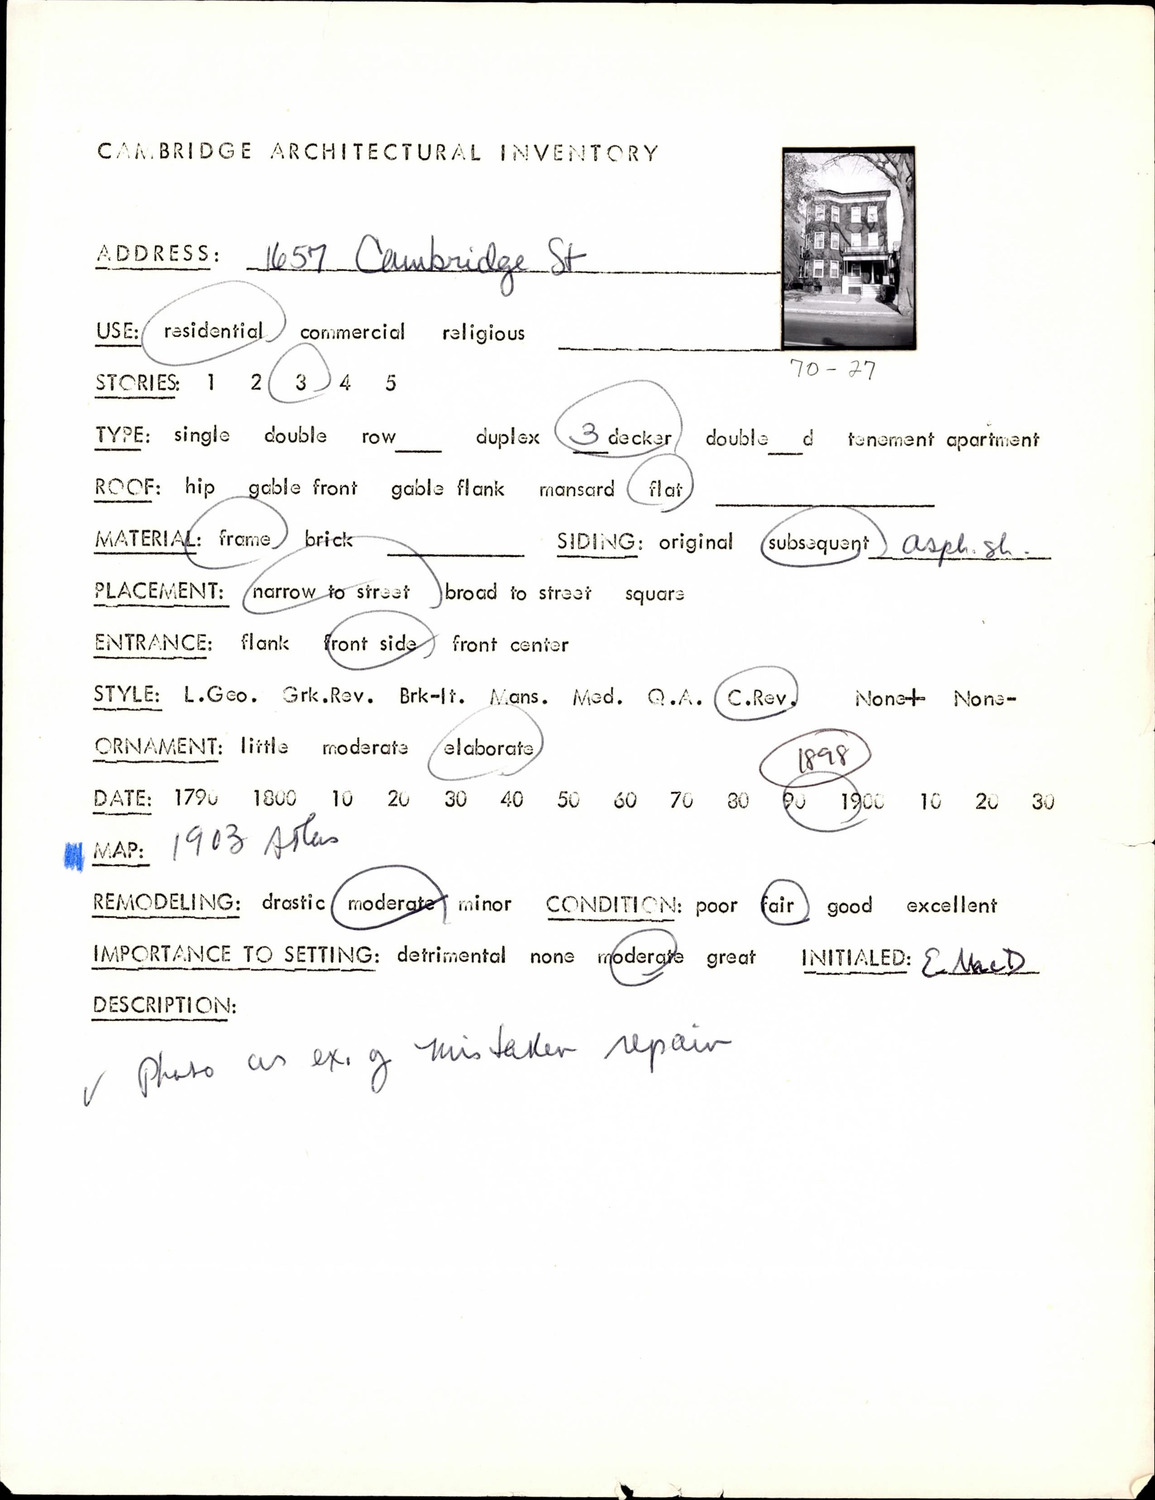 CAMBRIDGE ARCHITECTURAL INVENTORY
ADDRESS: 1657 Cambridge St
USE: residential commercial religious
70-27
STORIES: 1 2 3 4 5
TYPE: single double row___ duplex 3 decker double___d tenement apartment
ROOF: hip gable front gable flank mansard flat
MATERIAL: frame brick ___ SIDING: original subsequent asph. sh.
PLACEMENT: narrow to street broad to street square
ENTRANCE: flank front side front center
STYLE: L.Geo. Grk.Rev. Brk-It. Mans. Med. Q.A. C.Rev. None+ None-
ORNAMENT: little moderate elaborate
1898
DATE: 1790 1800 10 20 30 40 50 60 70 80 90 1900 10 20 30
MAP: 1903 Atlas
REMODELING: drastic moderate minor CONDITION: poor fair good excellent
IMPORTANCE TO SETTING: detrimental none moderate great INITIALED: E. MacD
DESCRIPTION:
✓ Photo as ex. of mistaken repair